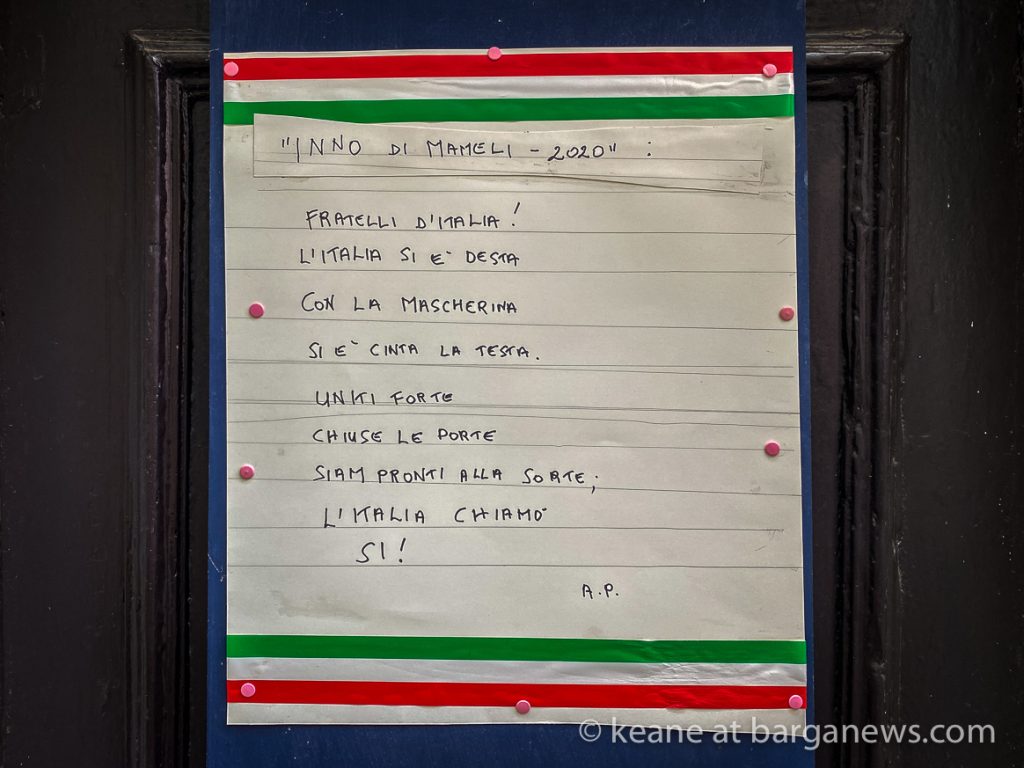 "INNO DI MAMELI - 2020" :
FRATELLI D'ITALIA!
L'ITALIA SI E` DESTA
CON LA MASCHERINA
SI E` CINTA LA TESTA.
UNITI FORTE
CHIUSE LE PORTE
SIAM PRONTI ALLA SORTE;
L'ITALIA CHIAMÒ
SI!
A.P.
© keane at barganews.com